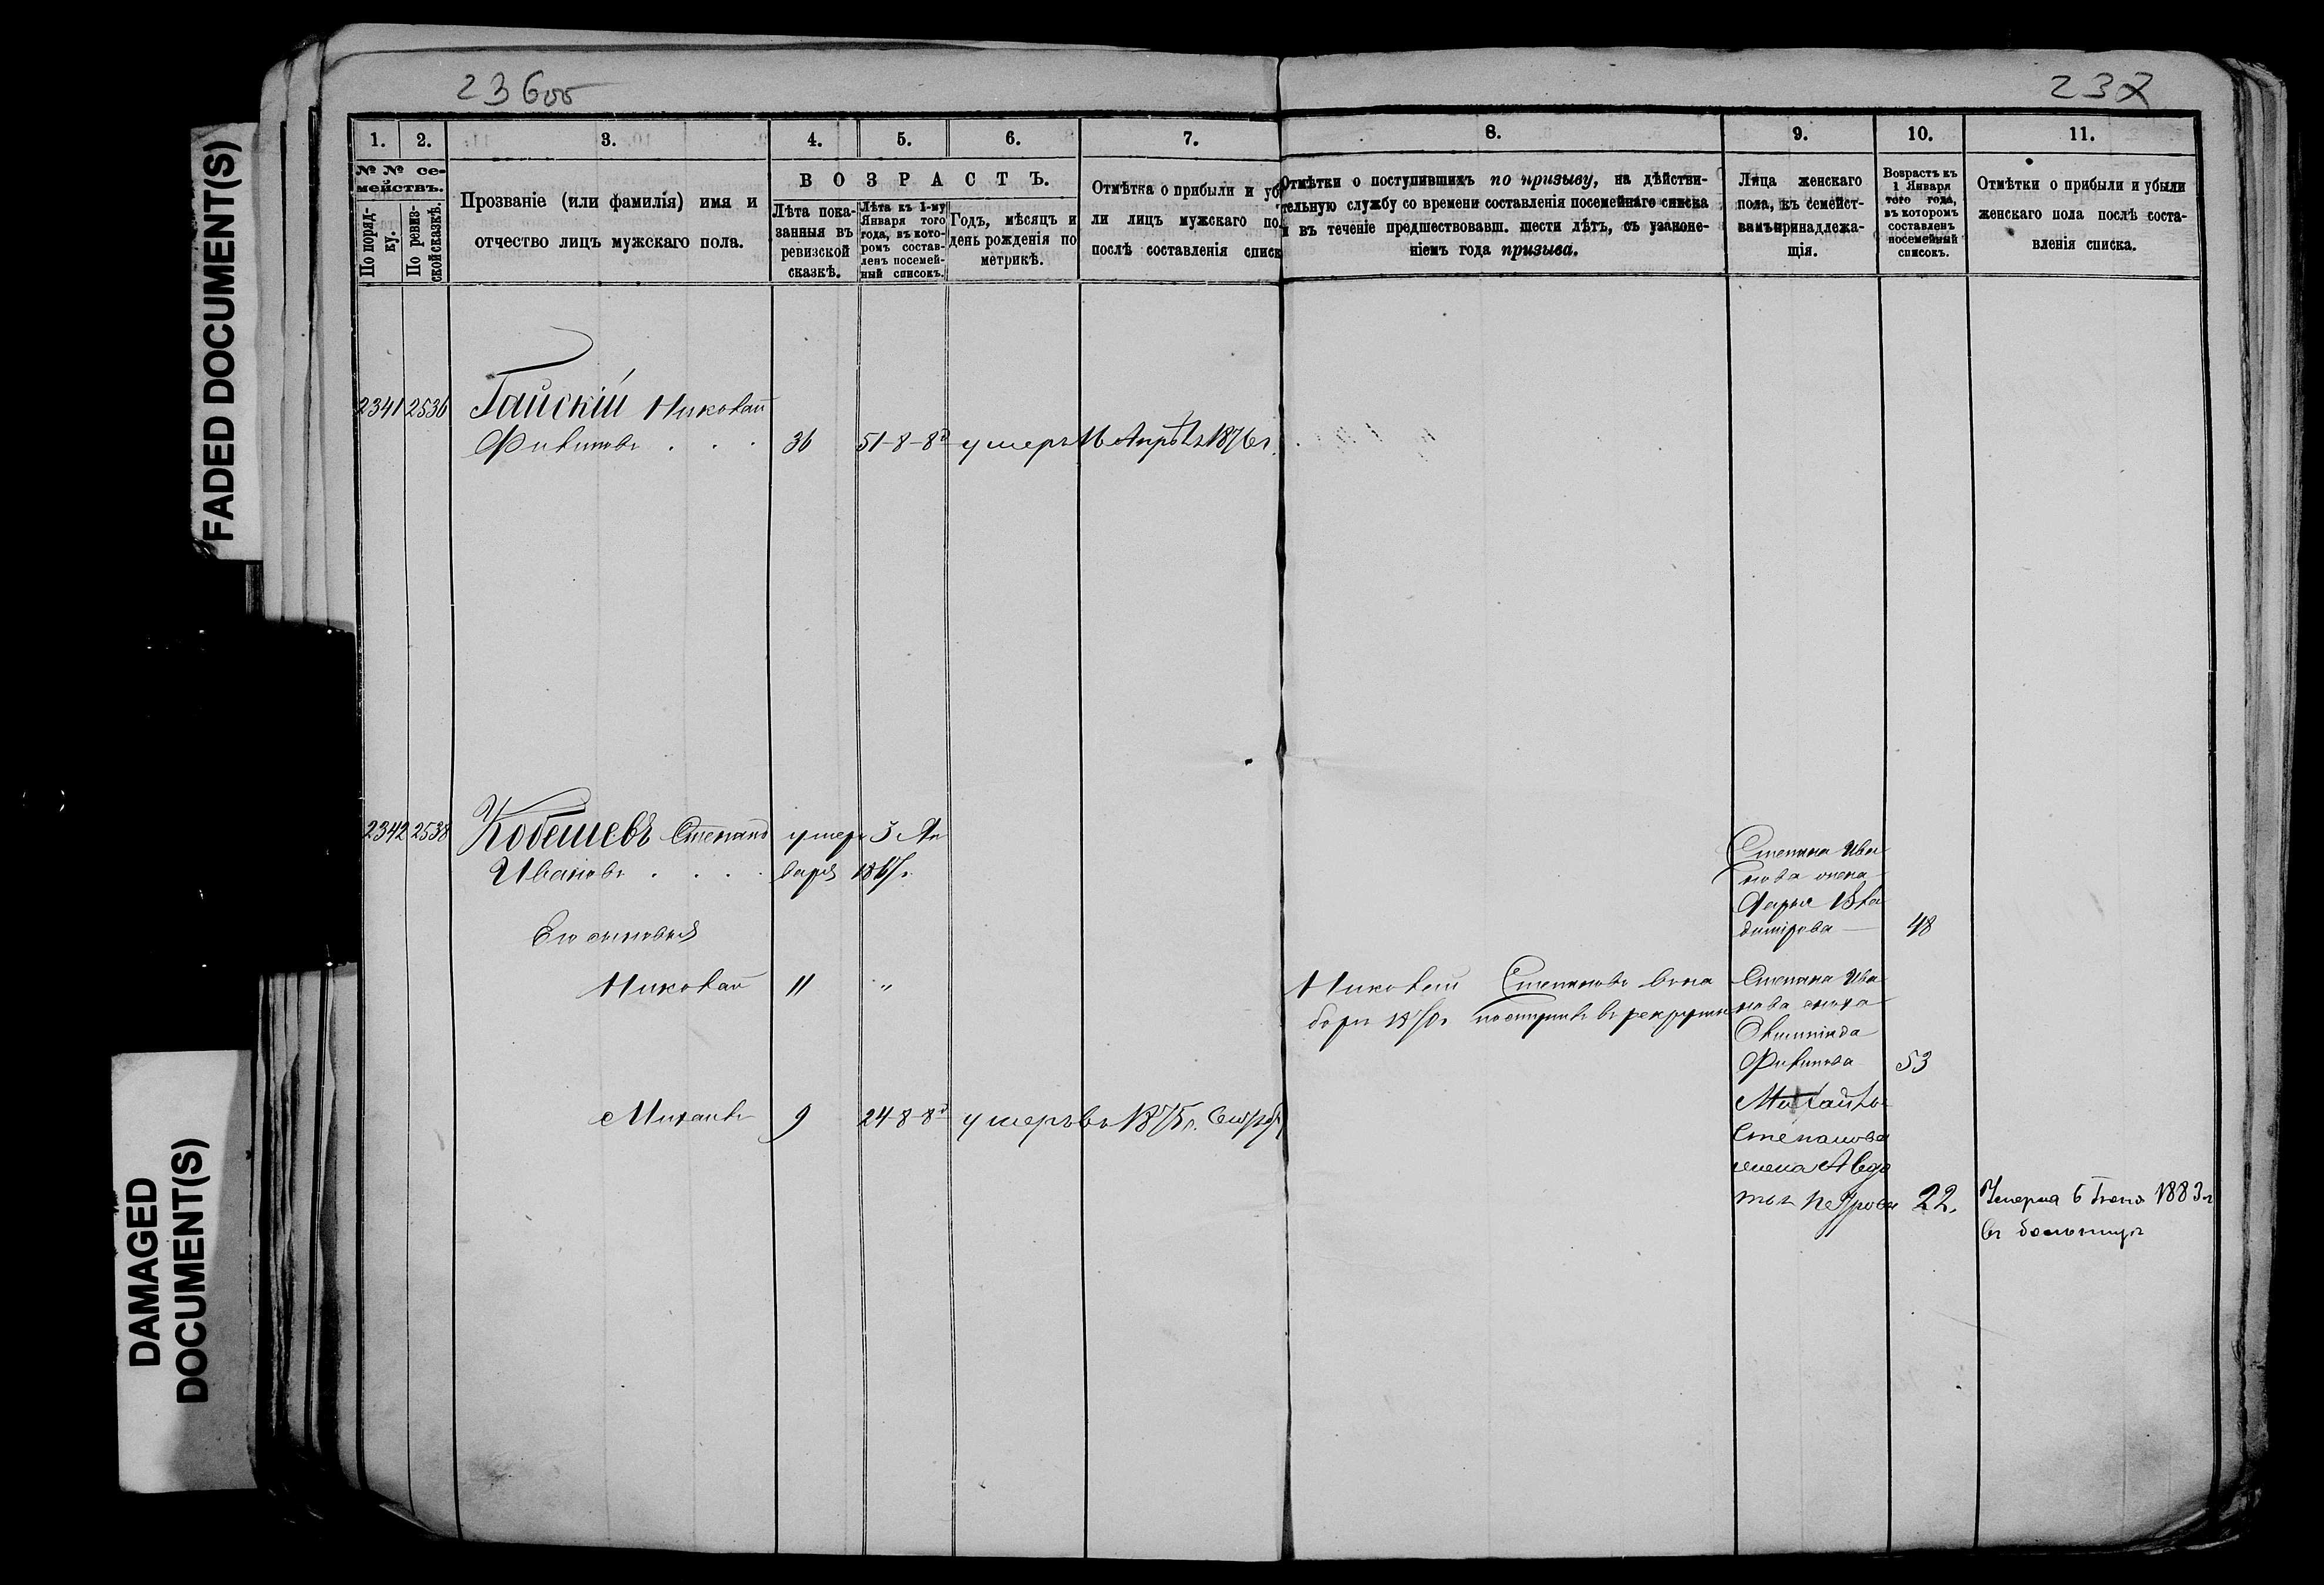 FADED DOCUMENT(S)
DAMAGED
DOCUMENT(S)
236об
237
1.
2.
3.
4.
5.
6.
7.
8.
9.
10.
11.
№ № се-
мействъ.
По поряд-
ку.
По ревиз-
ской сказкѣ.
Прозваніе (или фамилія) имя и
отчество лицъ мужскаго пола.
ВОЗРАСТЪ.
Лѣта пока-
занныя въ
ревизской
сказкѣ.
Лѣта къ 1-му
Января того
года, въ кото-
ромъ состав-
ленъ посемей-
ный списокъ.
Годъ, мѣсяцъ и
день рожденія по
метрикѣ.
Отмѣтка о прибыли и уб
ли лицъ мужскаго по
послѣ составленія списк
Отмѣтки о поступившихъ по призыву, на дѣйстви-
тельную службу со времени составленія посемейнаго списка
и въ теченіе предшествовавш. шести лѣтъ, съ узаконе-
ніемъ года призыва.
Лица женскаго
пола, къ семейст-
вамъ принадлежа-
щія.
Возрастъ къ
1 Января
того года,
въ которомъ
составленъ
посемейный
списокъ.
Отмѣтки о прибыли и убыли
женскаго пола послѣ соста-
вленія списка.
2341 2536 Гайскій Николай
Филиповъ . . . 36 51-8-8д умеръ 16 Апрѣля 1876г.
2342 2538 Кобешевъ Степанъ умеръ 3 Ян
Ивановъ . . . . варя
Его сыновья
Николай 11 „
Николай Степановъ вна
боръ 1870г поступилъ въ рекруты
Михаилъ 9 24-8-8д умеръ въ 1875г.
Степана Ива
нова жена
Дарья Вла
димірова — 48
Степана Ива
нова
Филипова 53
Михайлы
Степанова
жена Авдо
тья Петрова 22.
Умерла 6 Іюня 1883г
въ больницѣ